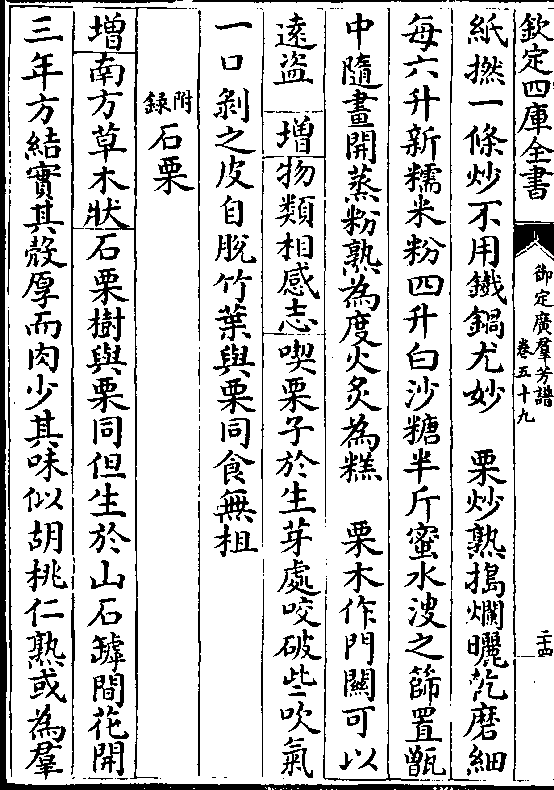 欽定四庫全書
御定廣羣芳譜
卷五十九
二十四
紙撚一條炒不用鐵鍋尤妙　栗炒熟搗爛曬乾磨細
每六升新糯米粉四升白沙糖半斤蜜水溲之篩置甑
中隨畫開蒸粉熟為度火炙為糕　栗木作門關可以
遠盜　增物類相感志喫栗子於生芽處咬破些吹氣
一口剝之皮自脫竹葉與栗同食無柤
附錄石栗
增南方草木狀石栗樹與栗同但生於山石罅間花開
三年方結實其殼厚而肉少其味似胡桃仁熟或為羣